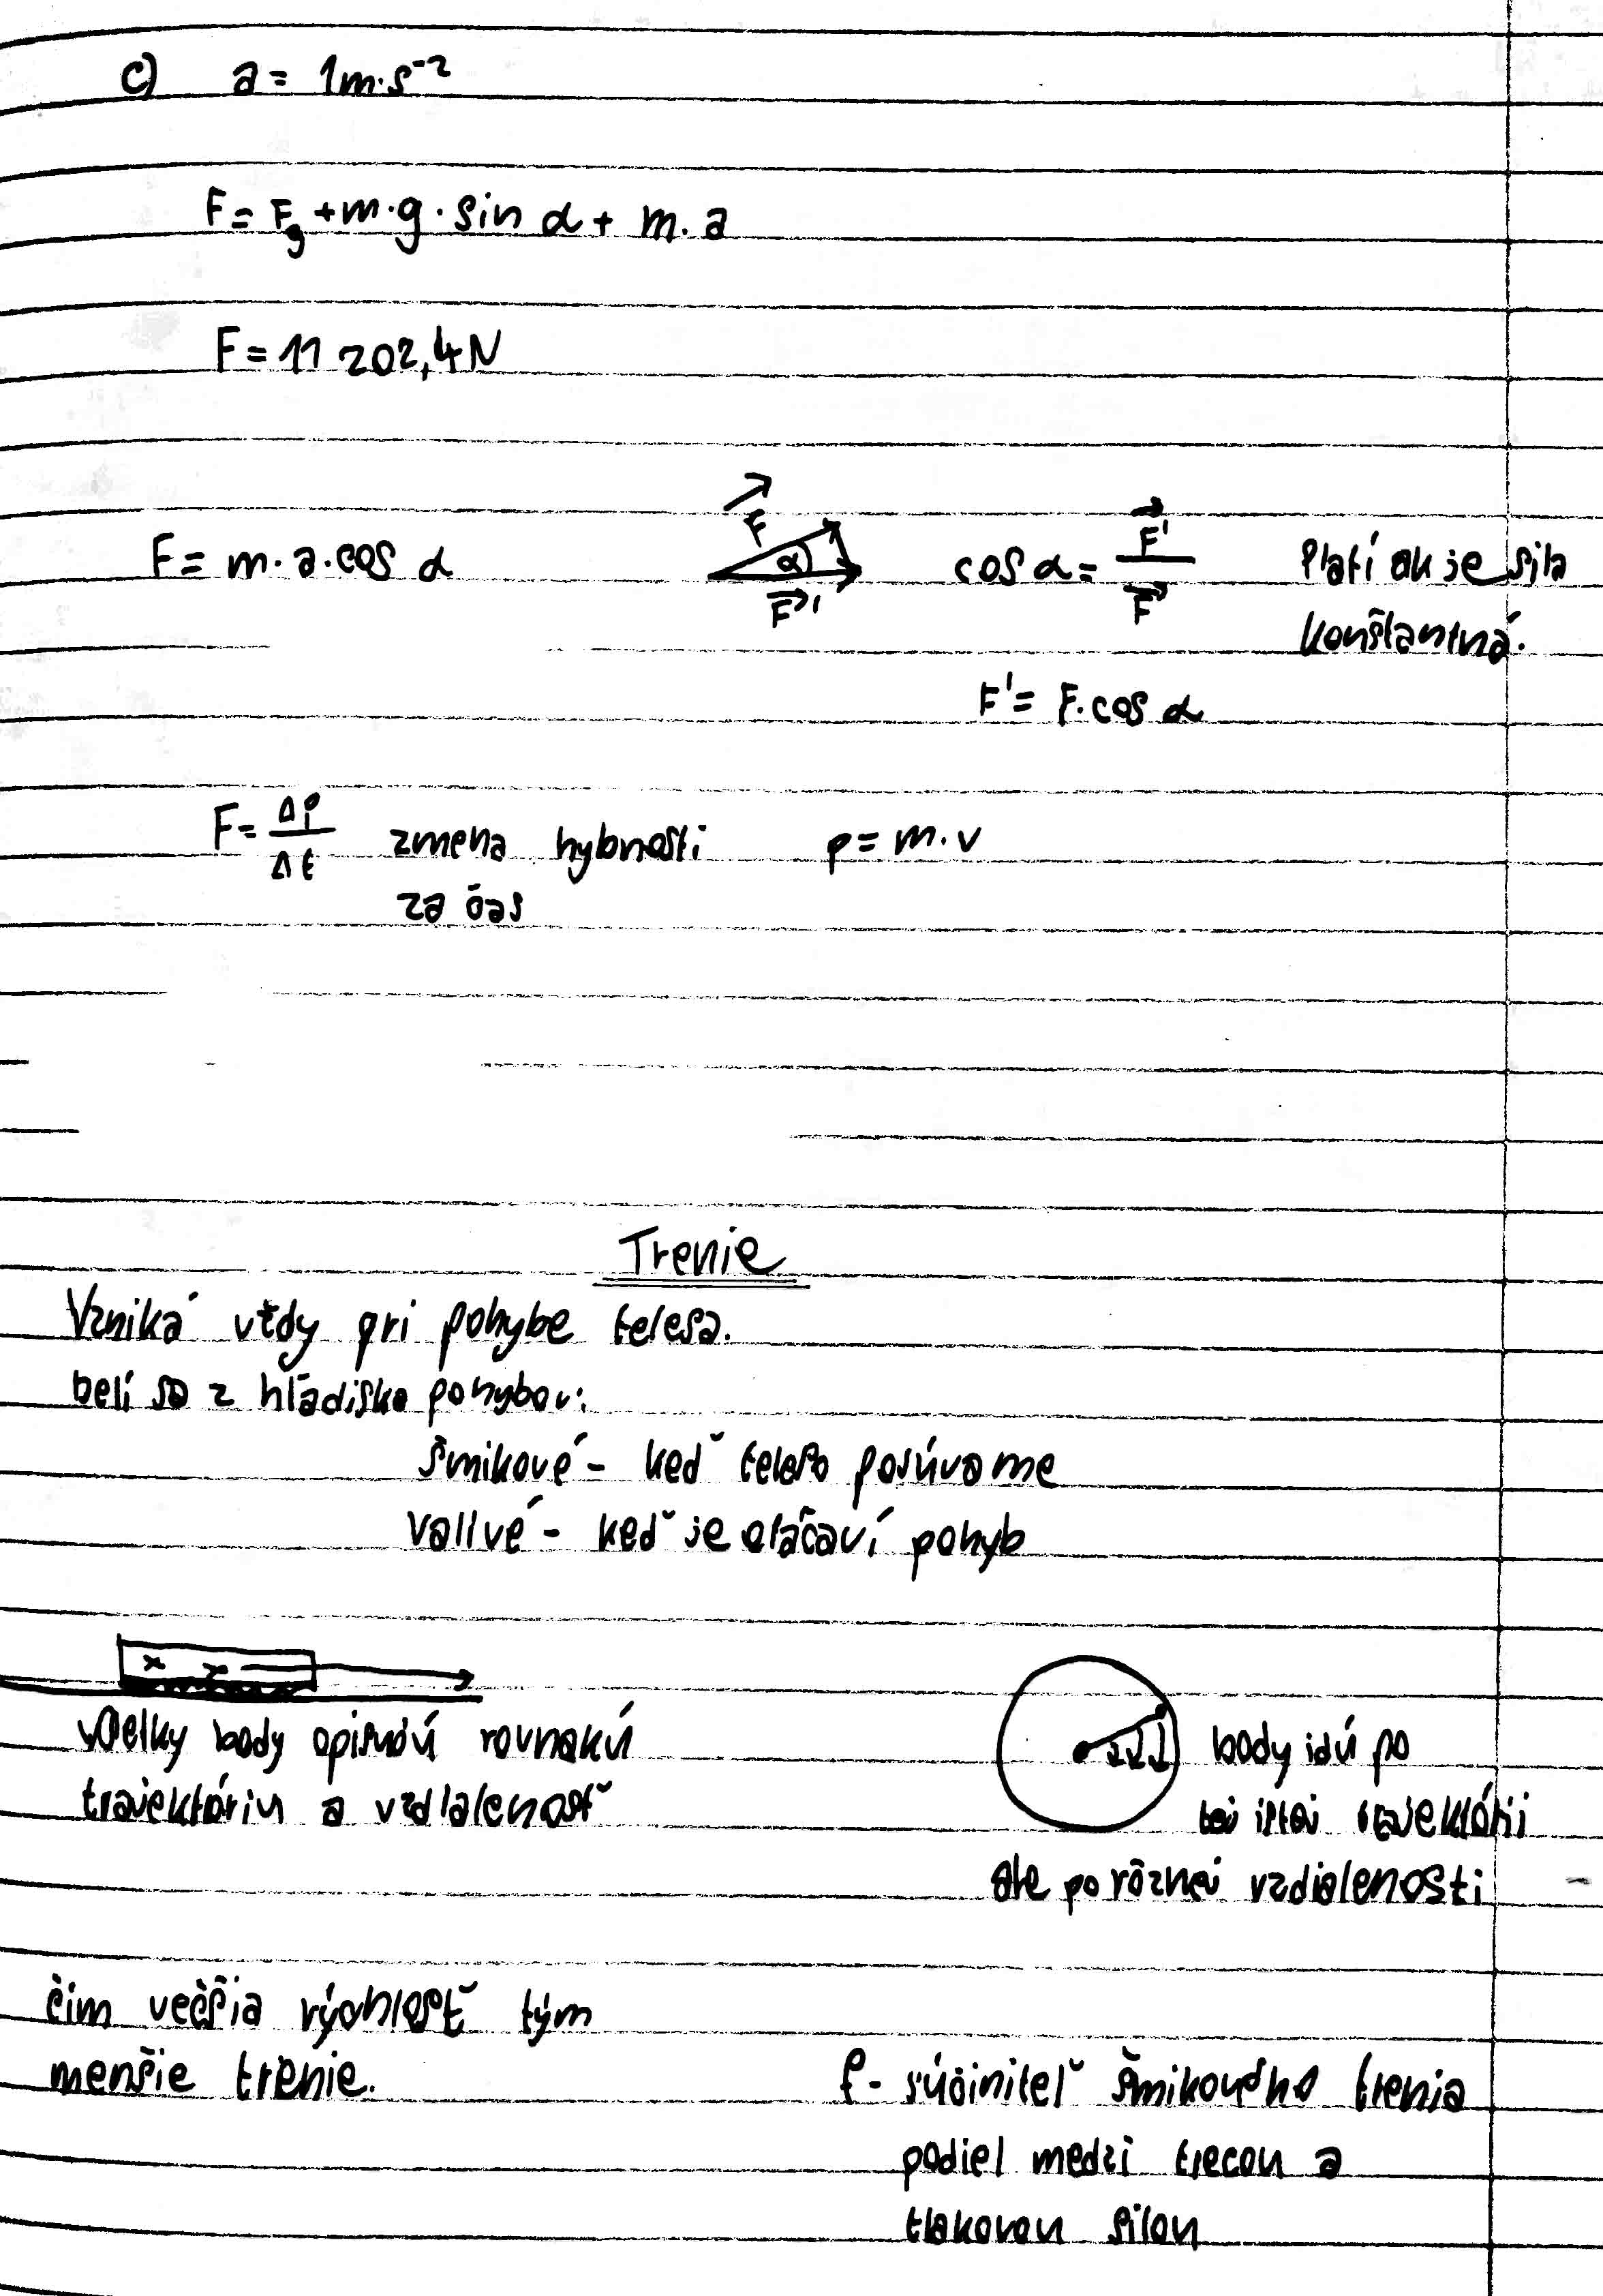 c) a = 1m·s⁻²
F = Fg + m·g·sin α + m·a
F = 11 202,4N
F = m·a·cos α
F
α
F'
cos α = F' / F
Platí ak je sila
konštantná.
F' = F·cos α
F = Δp / Δt zmena hybnosti
za čas
p = m·v
Trenie
Vzniká vždy pri pohybe telesa.
Delí sa z hľadiska pohybov:
šmikové - keď teleso posúvame
Vallvé - keď je otáčaví pohyb
všetky body opisujú rovnakú
trajektóriu a vzdialenosť
body idú po
tej istej trajektórii
ale po rôznej vzdialenosti
čim večšia rýchlosť tým
menšie trenie.
f - súčiniteľ šmikového trenia
podiel medzi trecou a
tlakovou silou